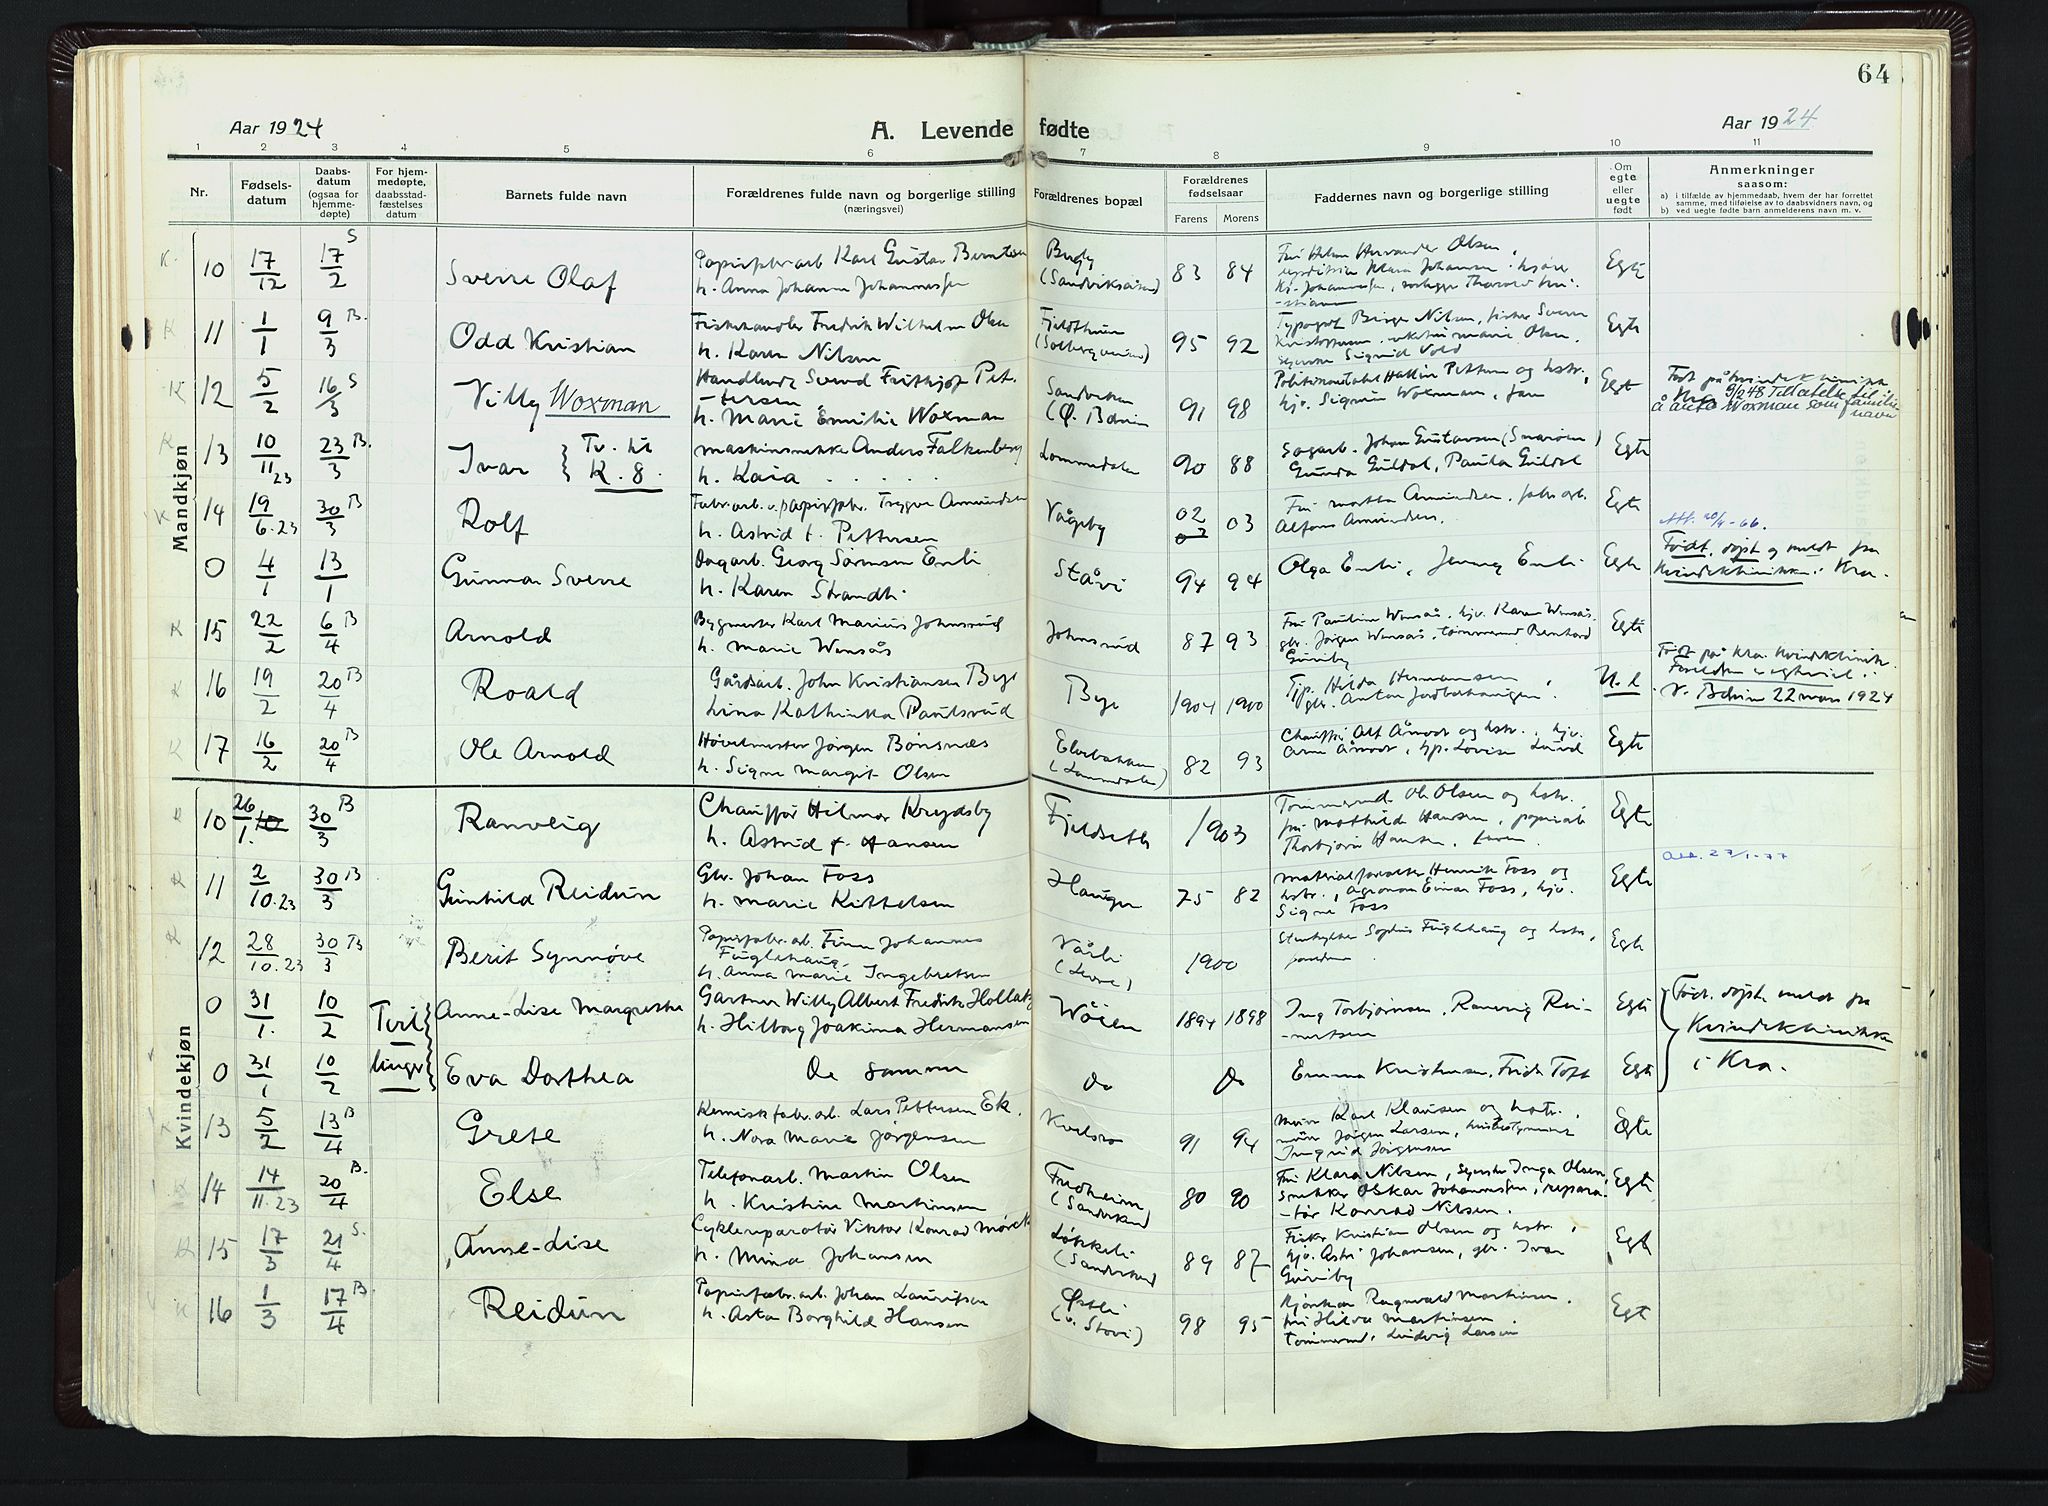 64
Aar 1924
A. Levende fødte
Aar 1924
1 2 3 4 5 6 7 8 9 10 11
Nr.
Fødsels-
datum
Daabs-
datum
(ogsaa for
hjemme-
døpte)
For hjem-
medøpte,
daabsstad-
fæstelses
datum
Barnets fulde navn
Forældrenes fulde navn og borgerlige stilling
(næringsvei)
Forældrenes bopæl
Forældrenes
fødselsaar
Farens Morens
Faddernes navn og borgerlige stilling
Om
egte
eller
uegte
født
Anmerkninger
saasom:
a) i tilfælde av hjemmedaab, hvem der har forrettet
samme, med tilføielse av to daabsvidners navn, og
b) ved uegte fødte barn anmelderens navn m. v.
Mandkjøn
10 17/12 17/2 S Sverre Olaf Karl Gustav Berntsen
h. Anna Johanne Johannessen
(Sandviksåsen) 83 84 Egte
11 1/1 9/3 B. Odd Kristian Fiskehandler Fredrik Wilhelm Olsen
h. Karen Nilsen
95 92 Typograf Birger Nilsen
Sigrid Vold
Egte
12 5/2 16/3 S Villy Woxman Svend Frithjof Pet-
tersen
h. Marie Emilie Woxman
Sandviken
91 98 Egte
6/2 48 Tillatelse til
å anta Woxman som familie
navn
13 10/11 23 23/3 B. Ivar Tv. til
K. 8. Anders Falkenberg
h. Kaia
Lommedalen 90 88 Sagarb. Johan Gustavsen (Snarøen)
Gunda Guldal, Paula Guldal
Egte
14 19/6.23 30/3 B Rolf Trygve Amundsen
h. Astrid f. Pettersen
Vågeby 02 03 Fru Martha Amundsen, fabr.arb.
Alfons Amundsen.
Egte
0 4/1 13/1 Gunnar Sverre Dagarb. Georg Sørensen Enli
h. Karen Strandli
Ståvi 94 94 Olga Enli, Jenny Enli Egte
Født, døpt og meldt fra
Kvindeklinikken i Kra.
15 22/2 6/4 B Arnold Bygmester Karl Marius Johnsrud
h. Marie Wensås
Johnsrud 87 93 Fru Pauline Wensås, hjv. Karen Wensås
gbr. Jørgen Wensås, tømmermd Bernhard
Gurriby
Egte
16 19/2 20/4 B Roald Gårdsarb. John Kristiansen Bye
Lina Kathinka Paulsrud
Bye 1904 1900 Tjp. Hilda Hermansen
gbr. Anton
U. e.
Født på Kra. Kvindeklinik.
22 mars 1924
17 16/2 20/4 B Ole Arnold Høvelmester Jørgen Bønsnæs
h. Signe Margit Olsen
(Lommedalen) 82 93 Chauffør Alf Årvor og hstr., hjv.
Lovise Lund
Egte
Kvindekjøn
10 26/1. 30/3 B Ranveig Chauffør Hilmar Krydsby
h. Astrid f. Hansen
Fjeldsæth 1903 Tømmermd. Ole Olsen og hstr.
fru Mathilde Hansen
Thorbjørn Hansen
Egte
11 2/10.23 30/3 B Gunhild Reidun Gbr. Johan Foss
h. Marie Kittelsen
Haugen 75 82 Materialforvalter Henrik Foss og
hstr., agronom Einar Foss, hjv.
Signe Foss
Egte
12 28/10.23 30/3 B Berit Synnøve Papirfabr.arb. Finn Johannes
Fuglehaug
h. Anna Marie Ingebretsen
1900 Sophus Fuglehaug og hstr.,
Egte
0 31/1. 10/2 Tvil Anne-Lise Margrethe Gartner Willy Albert Fredrik Hollatz
h. Hilborg Joakima Hermansen
Wøien 1894 1898 Ing Torbjørnsen, Ranveig Rei-
nertsen
Egte
Født, døpt, meldt fra
Kvindeklinikken
i Kra.
0 31/1 10/2 linger Eva Dorthea De samme Do Do Emma Kristensen, Frida Toft Egte
13 5/2 13/4 B Grete Kemisk fabr.arb. Lars Pettersen Ek.
h. Nora Marie Jørgensen
91 94 Murer Karl Klausen og hstr.,
murer Jørgen Larsen
Ingrid Jørgensen
Egte
14 14/11.23 20/4 B. Else Telefonarb. Martin Olsen
h. Kristine Martinsen
Fredheim
80 90 Fru Klara Nilsen, syerske Inga Olsen,
snekker Oskar Johannessen, repara-
tør Konrad Nilsen.
Egte
15 17/3 21/4 S. Anne-Lise Cyklereparatør Viktor Konrad Mørck
h. Mina Johansen
Løkkeli
89 87 Fisker Kristian Olsen og hstr.,
hjv. Astri Johansen, gbr. Ivar
Gurriby
Egte
16 1/3 17/4 B. Reidun Papirfabr.arb. Johan Lauritsen
h. Asta Borghild Hansen
Østli
(v. Stovi) 98 95 Ragnvald Martinsen,
fru Hilda Martinsen,
tømmermd. Ludvig Larsen
Egte